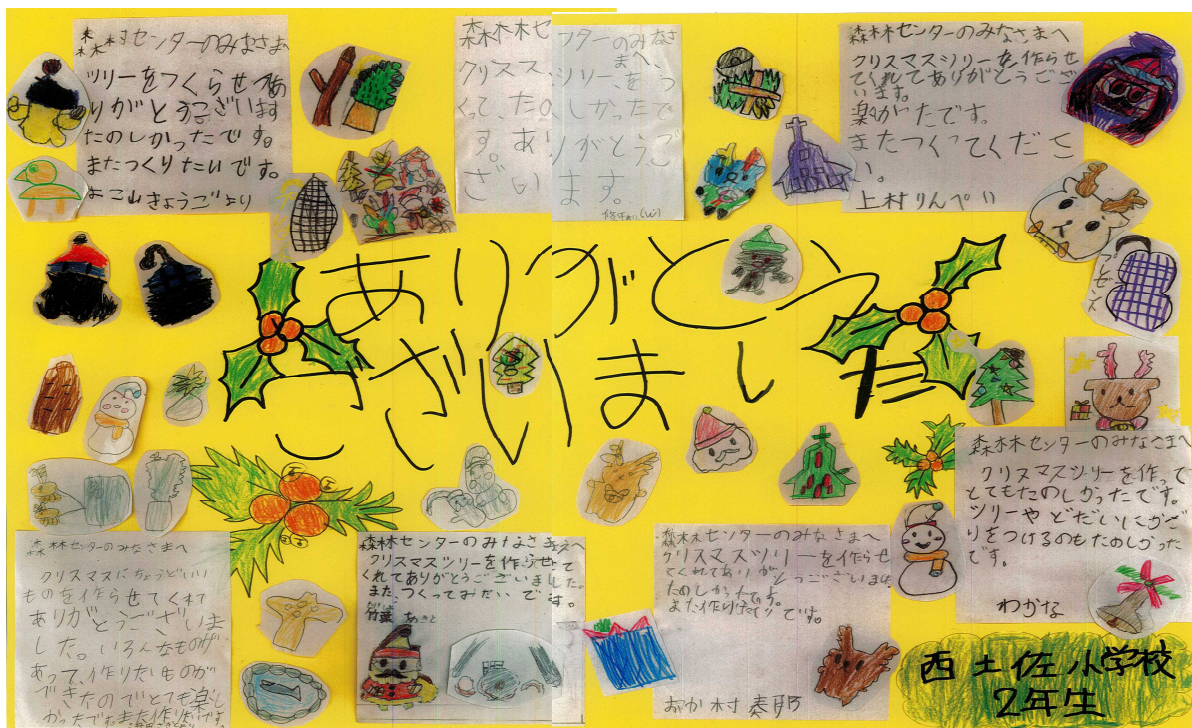 森林センターのみなさまへ
ツリーをつくらせてあ
りがとうございます
たのしかったです。
またつくりたいです。
よこ山きょうごより
森林木センターのみなさ
まへ、
クリスマスツリーをつ
くって、たのしかったで
す。ありがとうご
ざいます。
森林センターのみなさまへ
クリスマスツリーを作らせ
てくれてありがとうござ
います。
楽かたです。
またつくってくださ
い。
上村りんぺい
プレゼント
ありがとう
ございました
森林センターのみなさまへ
クリスマスツリーを作って
とてもたのしかったです。
ツリーやどだいにかざ
りをつけるのもたのしかった
です。
わかな
森林センターのみなさまへ
クリスマスにちょうどいい
ものを作らせてくれて
ありがとうございま
した。いろんなものが
あって、作りたいものが
できたのでとても楽し
かったです
森林センターのみなさまへ
クリスマスツリーを作らせて
くれてありがとうございました。
また、つくってみたいです。
竹葉 あきと
森林センターのみなさまへ
クリスマスツリーを作らせ
てくれてありがとうございました
たのしかったです。
また作りたいです。
おか村
西土佐小学校
2年生